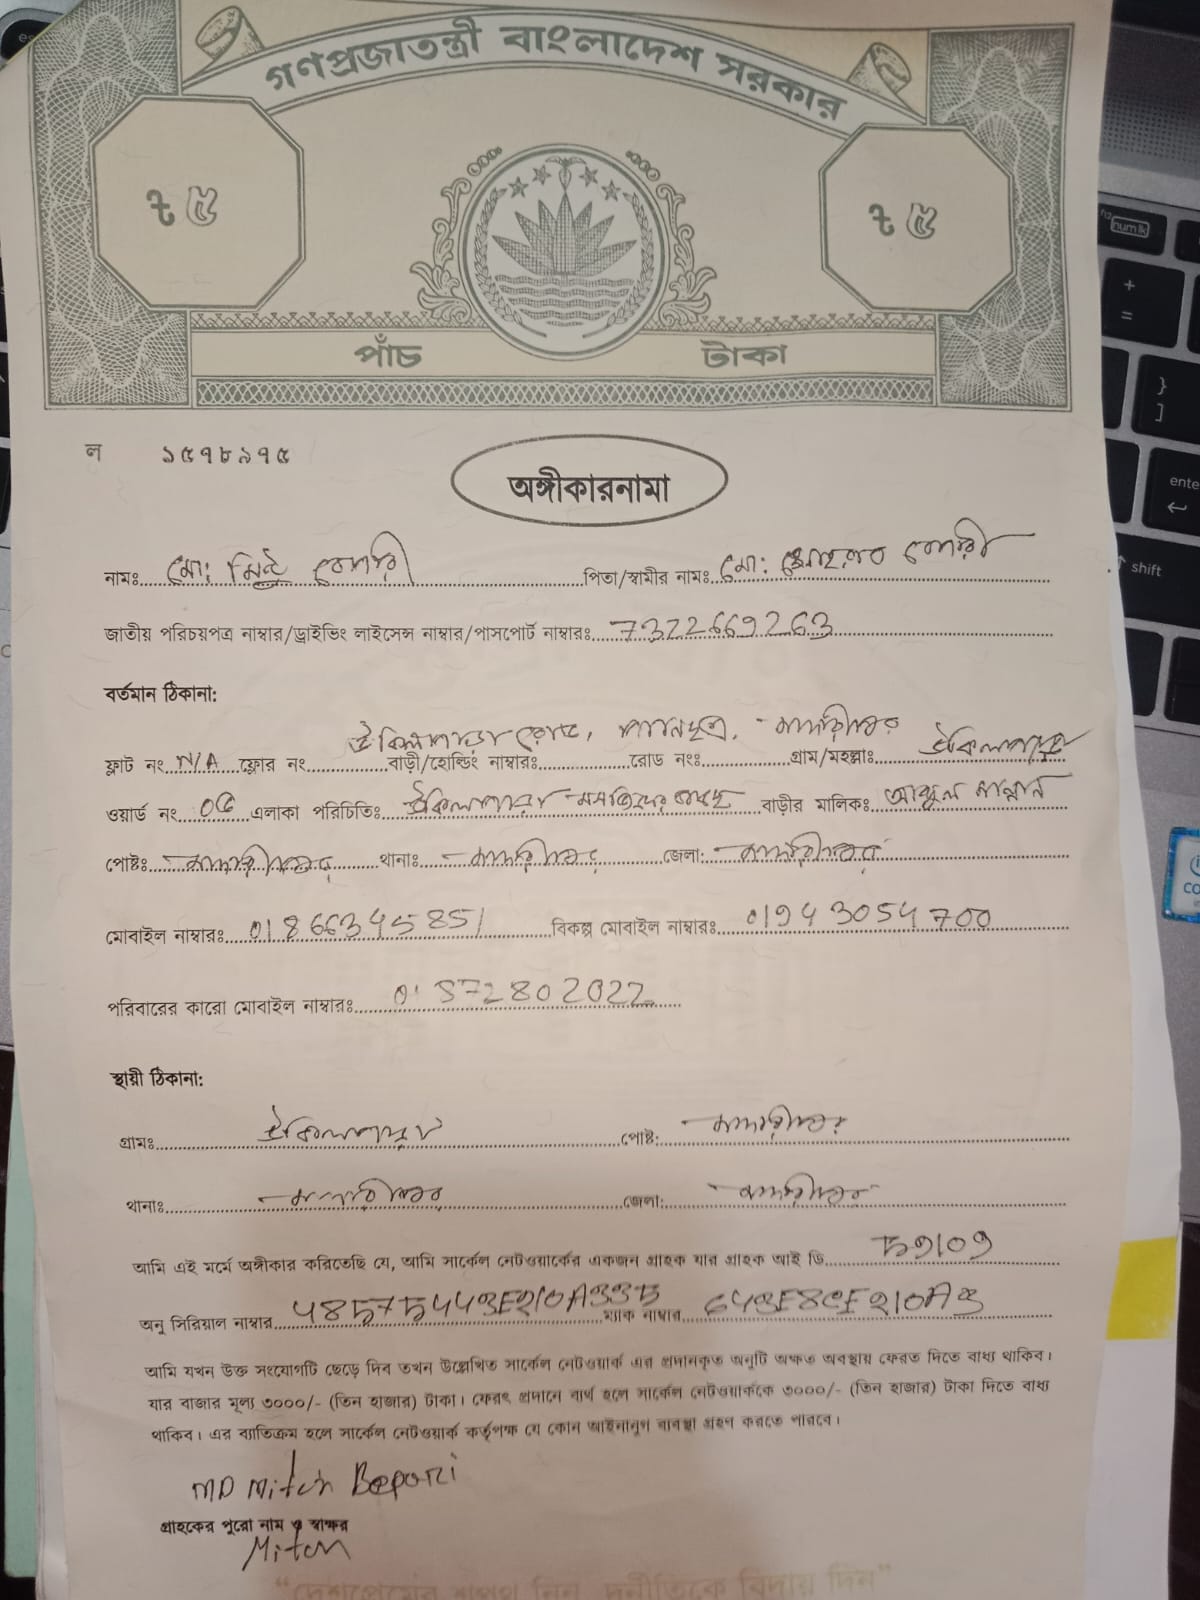 গণপ্রজাতন্ত্রী বাংলাদেশ সরকার
৳ ৫ ৳ ৫
পাঁচ টাকা
ল ১৫৭৮৯৭৫
অঙ্গীকারনামা
নামঃ মো: মিঠু বেপারী পিতা/স্বামীর নামঃ মো: বেপারী
জাতীয় পরিচয়পত্র নাম্বার/ড্রাইভিং লাইসেন্স নাম্বার/পাসপোর্ট নাম্বারঃ 7322669263
বর্তমান ঠিকানা:
উকিলপাড়া রোড, মাদারীপুর
ফ্লাট নং N/A ফ্লোর নং বাড়ী/হোল্ডিং নাম্বারঃ রোড নংঃ গ্রাম/মহল্লাঃ উকিলপাড়া
ওয়ার্ড নং 05 এলাকা পরিচিতিঃ উকিলপাড়া মসজিদের বাড়ীর মালিকঃ আব্দুল মান্নান
পোষ্টঃ মাদারীপুর থানাঃ মাদারীপুর জেলা: মাদারীপুর
মোবাইল নাম্বারঃ 01866345851 বিকল্প মোবাইল নাম্বারঃ 01943054700
পরিবারের কারো মোবাইল নাম্বারঃ
স্থায়ী ঠিকানা:
গ্রামঃ উকিলপাড়া পোষ্ট: মাদারীপুর
থানাঃ মাদারীপুর জেলা: মাদারীপুর
আমি এই মর্মে অঙ্গীকার করিতেছি যে, আমি সার্কেল নেটওয়ার্কের একজন গ্রাহক যার গ্রাহক আই ডি
অনু সিরিয়াল নাম্বার ম্যাক নাম্বার
আমি যখন উক্ত সংযোগটি ছেড়ে দিব তখন উল্লেখিত সার্কেল নেটওয়ার্ক এর প্রদানকৃত অনুটি অক্ষত অবস্থায় ফেরত দিতে বাধ্য থাকিব।
যার বাজার মূল্য ৩০০০/- (তিন হাজার) টাকা। ফেরৎ প্রদানে ব্যর্থ হলে সার্কেল নেটওয়ার্ককে ৩০০০/- (তিন হাজার) টাকা দিতে বাধ্য
থাকিব। এর ব্যতিক্রম হলে সার্কেল নেটওয়ার্ক কর্তৃপক্ষ যে কোন আইনানুগ ব্যবস্থা গ্রহণ করতে পারবে।
MD Mitch Bepari
গ্রাহকের পুরো নাম ও স্বাক্ষর
Mitch
“দেশপ্রেমের শপথ নিন, দুর্নীতিকে বিদায় দিন”
num lk
+
=
}
]
ente
shift